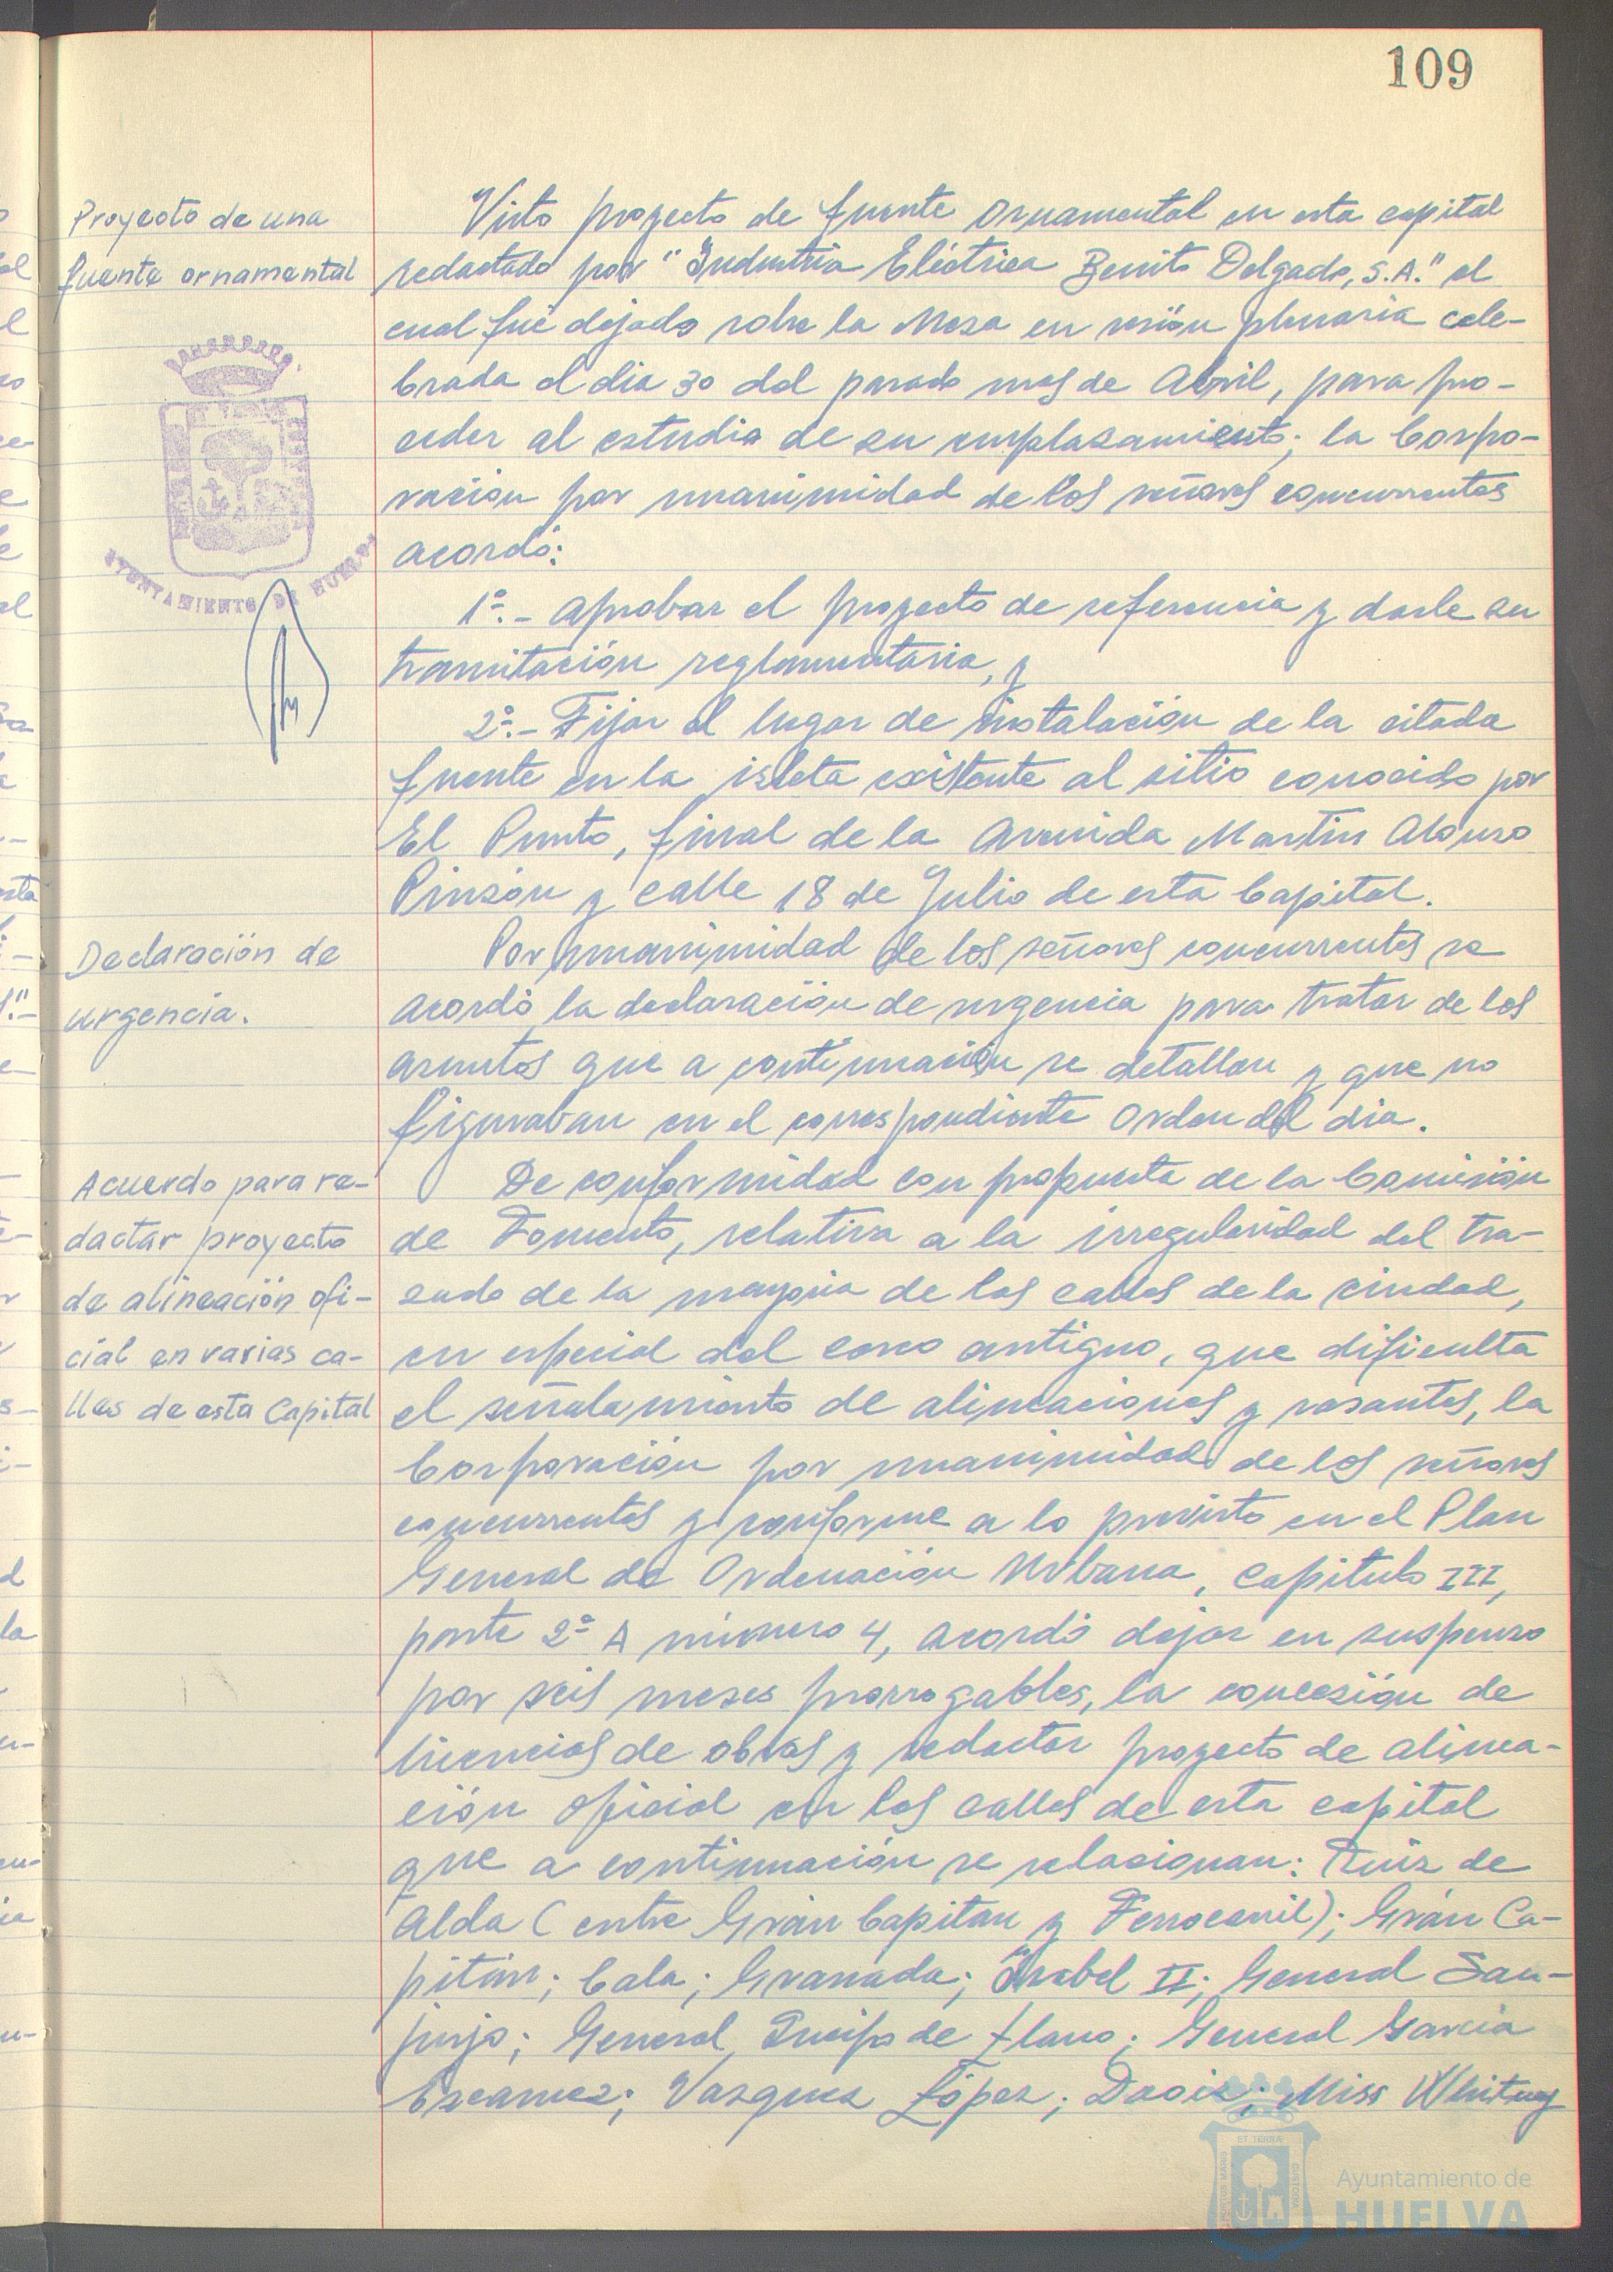 109
Proyecto de una
fuente ornamental
Visto proyecto de fuente ornamental en esta capital
redactado por "Industria Eléctrica Benito Delgado, S.A." el
cual fué dejado sobre la Mesa en sesión plenaria cele-
brada el dia 30 del pasado mes de Abril, para pro-
ceder al estudio de su emplazamiento; la Corpo-
ración por unanimidad de los señores concurrentes
acordó:
AYUNTAMIENTO DE HUELVA
1º.- Aprobar el proyecto de referencia y darle su
tramitación reglamentaria, y
2º.- Fijar el lugar de instalación de la citada
fuente en la isleta existente al sitio conocido por
El Punto, final de la Avenida Martin Alonso
Pinzón y calle 18 de Julio de esta Capital.
Declaración de
urgencia.
Por unanimidad de los señores concurrentes se
acordó la declaración de urgencia para tratar de los
asuntos que a continuación se detallan y que no
figuraban en el correspondiente Orden del dia.
Acuerdo para re-
dactar proyecto
de alineación ofi-
cial en varias ca-
lles de esta Capital
De conformidad con propuesta de la Comisión
de Fomento, relativa a la irregularidad del tra-
zado de la mayoria de las calles de la ciudad,
en especial del casco antiguo, que dificulta
el señalamiento de alineaciones y rasantes, la
Corporación por unanimidad de los señores
concurrentes y conforme a lo previsto en el Plan
General de Ordenación Urbana, Capitulo III,
parte 2ª A número 4, acordó dejar en suspenso
por seis meses prorrogables, la concesión de
licencias de obras y redactar proyecto de alinea-
ción oficial en las calles de esta capital
que a continuación se relacionan: Ruiz de
Alda (entre Gran Capitan y Ferrocarril); Gran Ca-
pitán; Cala; Granada; Isabel II; General San-
jurjo; General Queipo de Llano; General Garcia
Escamez; Vazquez López; Daoiz; Miss Whitney
Ayuntamiento de
HUELVA